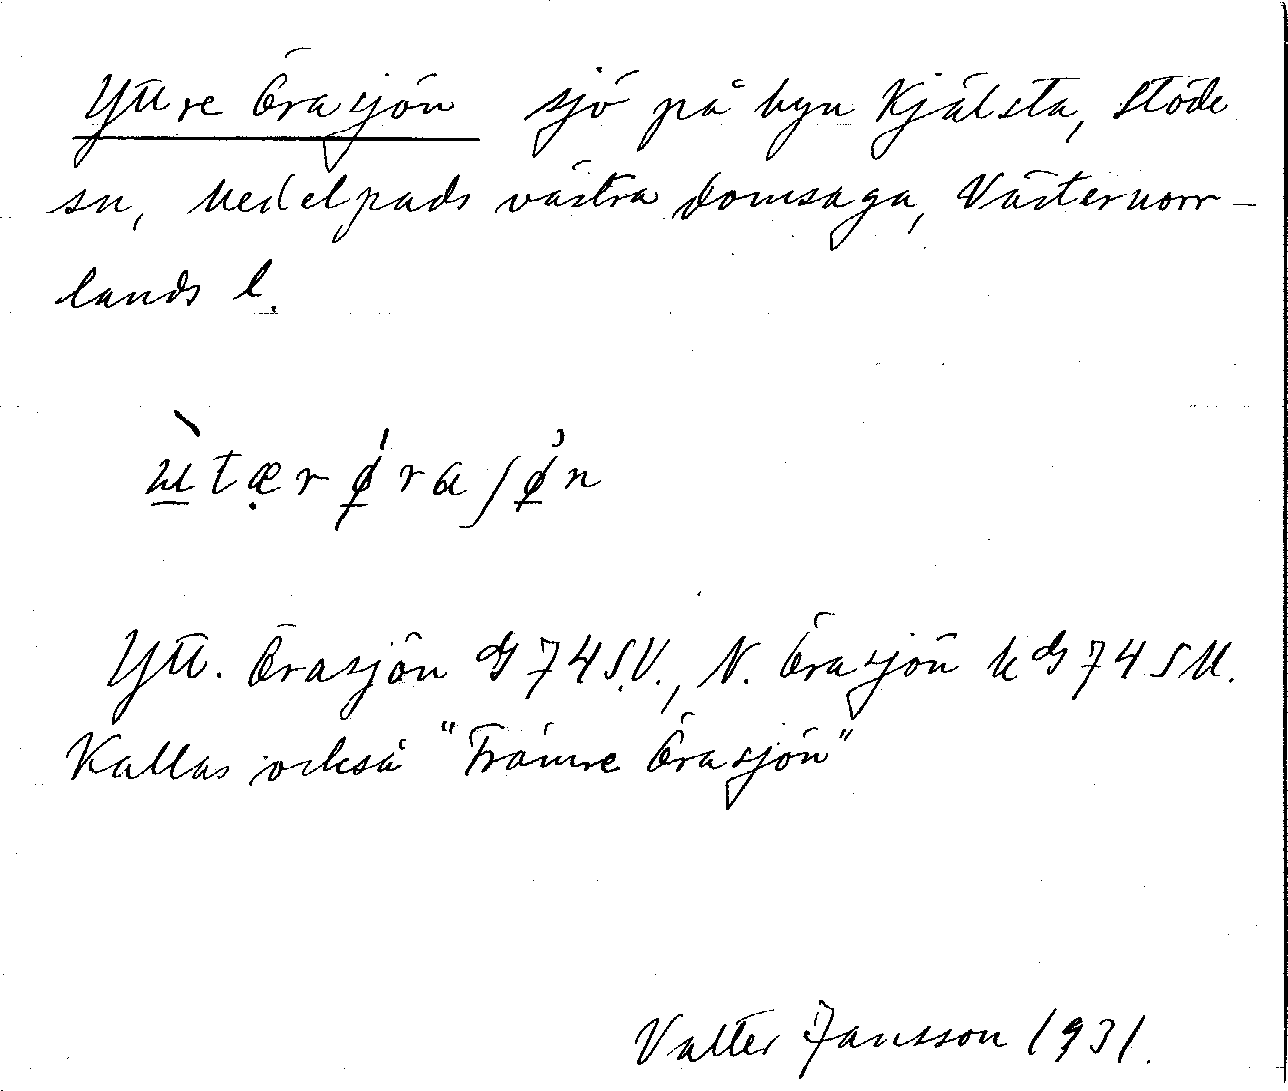 Yttre Örasjön sjö på byn Kjälsta, Stöde
sn, Medelpads västra domsaga, Västernorr-
lands l.
ɯ̀tær ǿra ʃøn
Ytt. Örasjön G 74 S.V., N. Örasjön k G 74 S M.
Kallas också "Främre Örasjön"
Valter Jansson 1931.